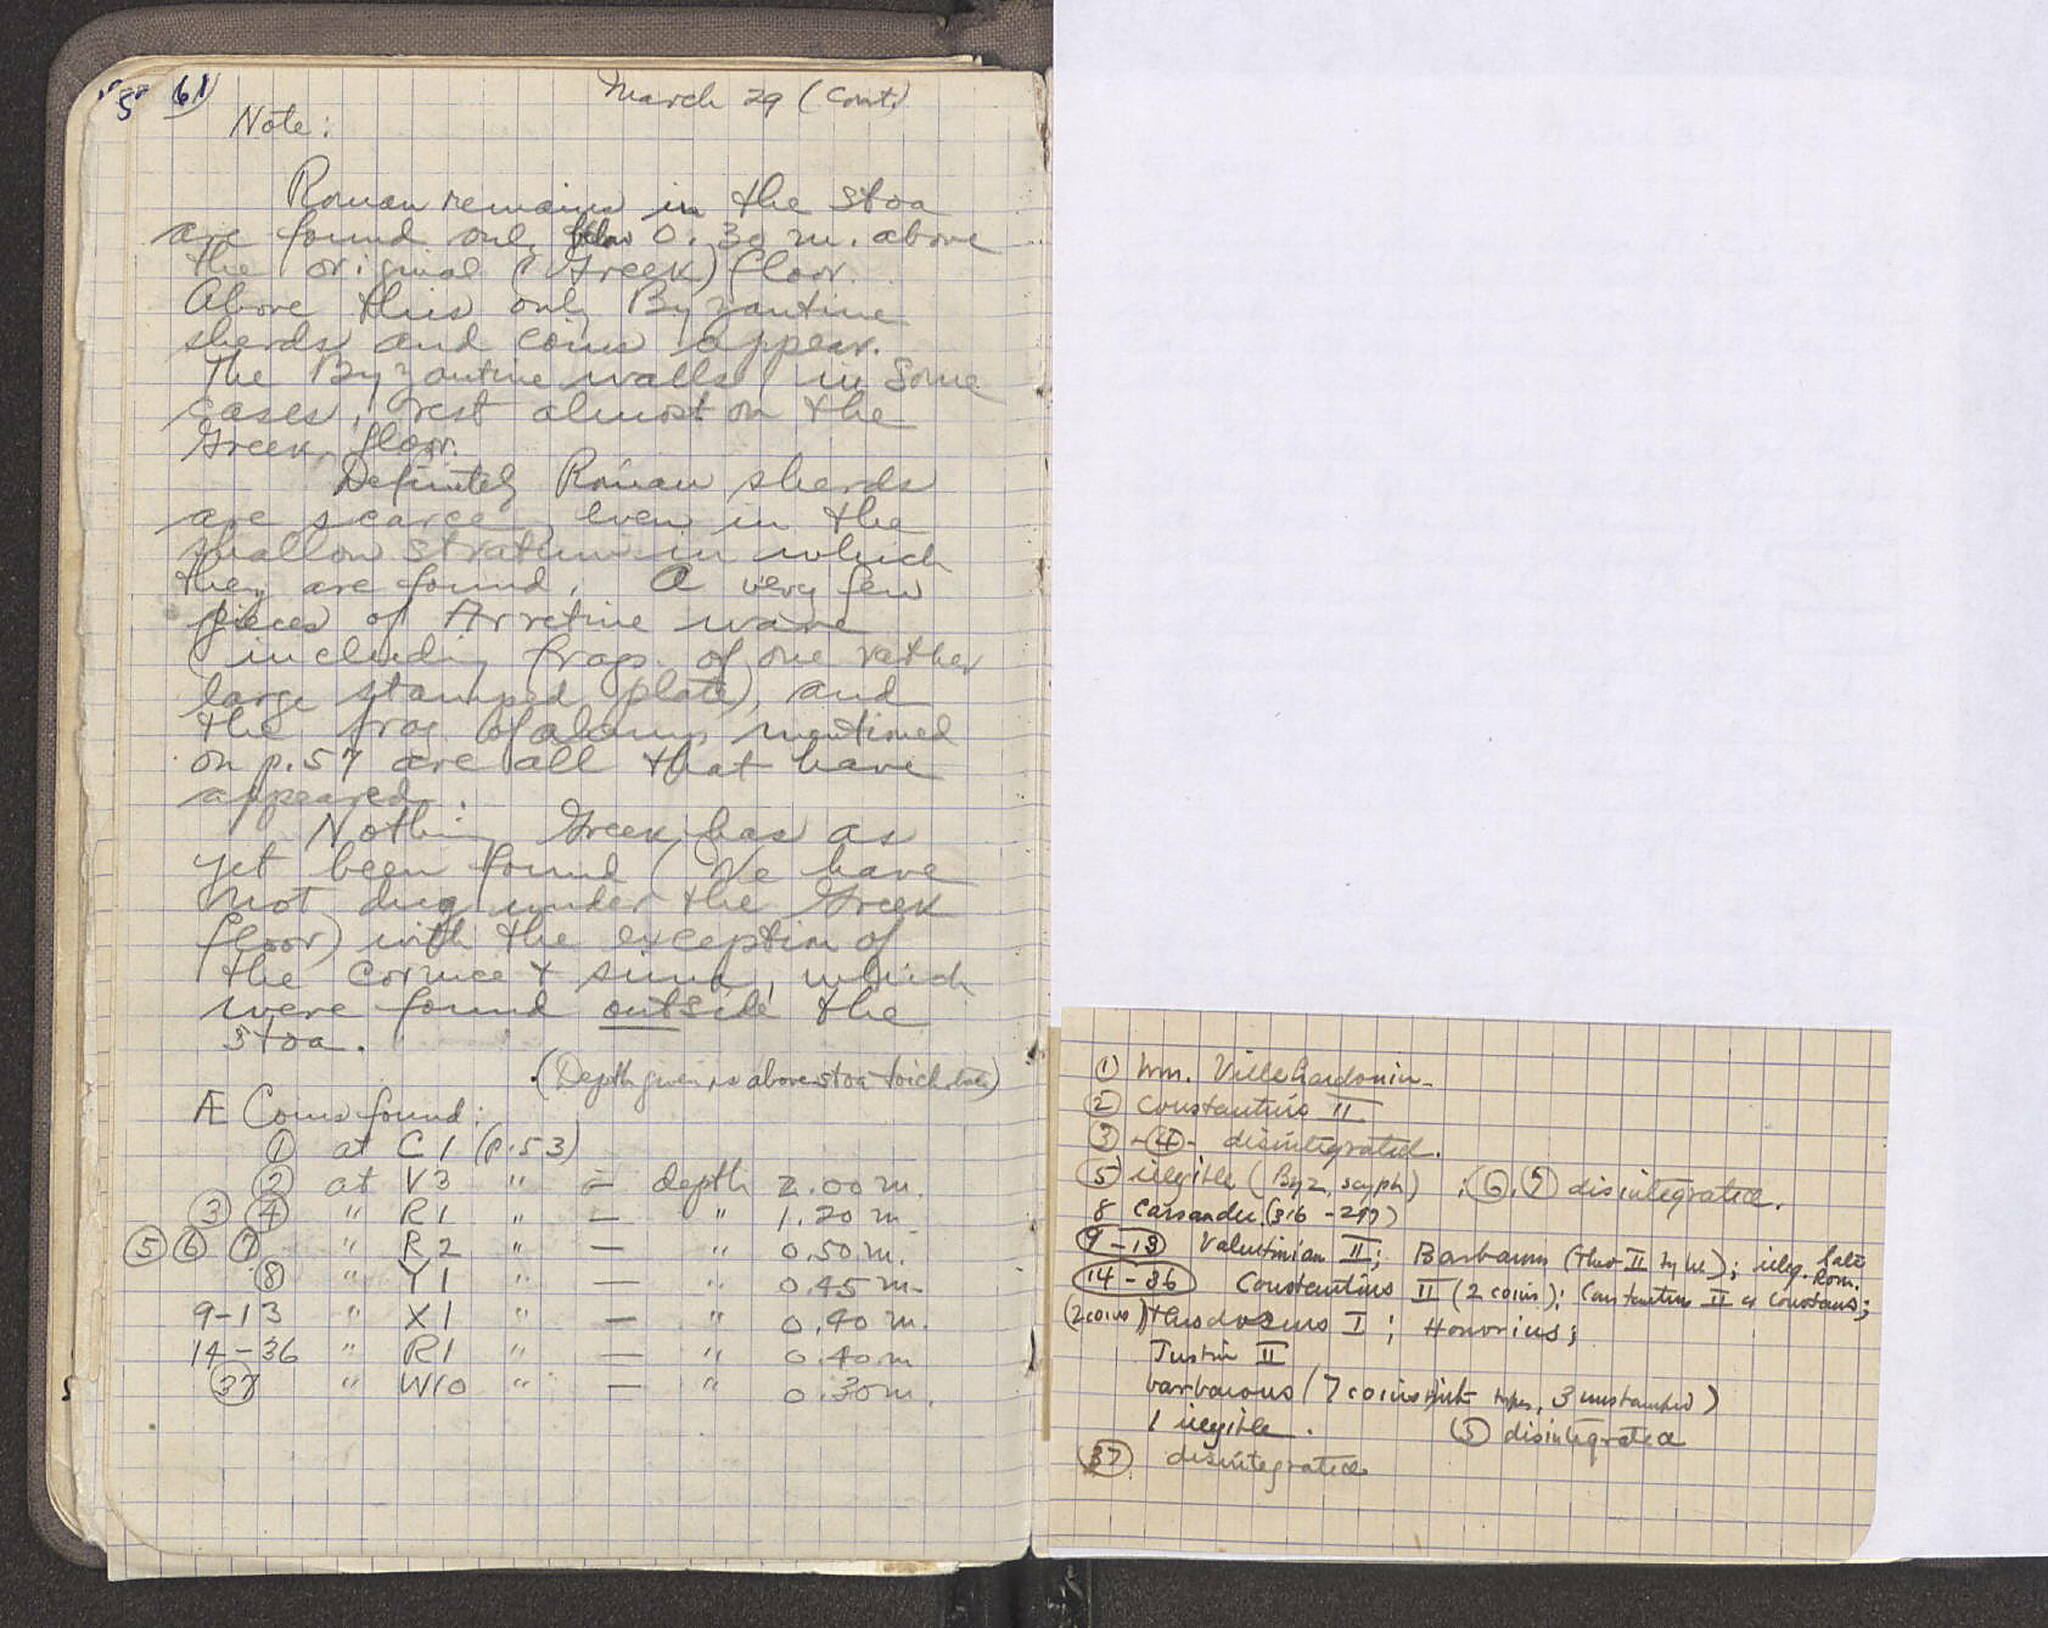 61
March 29 (Cont.)
Note:
Roman remains in the stoa
are found only below 0.30 m. above
the original (Greek) floor.
Above this only Byzantine
sherds and coins appear.
The Byzantine walls, in some
cases, rest almost on the
Greek floor.
Definitely Roman sherds
are scarce, even in the
shallow stratum in which
they are found. A very few
pieces of Arretine ware
(including frags. of one rather
large stamped plate), and
the frag. of a lamp mentioned
on p. 57 are all that have
appeared.
Nothing Greek has as
yet been found (We have
not dug under the Greek
floor) with the exception of
the cornice + sima, which
were found outside the
stoa.
(Depth given is above stoa
Æ Coins found:
① at C1 (p. 53)
② at V3 " = depth 2.00 m.
③ ④ " R1 " — " 1.20 m
⑤ ⑥ ⑦ " R2 " — " 0.50 m.
⑧ " Y1 " — " 0.45 m.
9-13 " X1 " — " 0.40 m.
14-36 " R1 " — " 0.40 m
37 " W10 " — " 0.30 m.
① Wm. Villehardouin
② Constantius II
③ - ④ - disintegrated.
⑤ illegible (Byz. scyph) ; ⑥, ⑦ disintegrated.
8 Cassander (316-297)
9-13 Valentinian II; Barbarous (Theo II type); illeg. late Rom.
14-36 Constantius II (2 coins); Constantius II or Constans;
(2 coins) Theodosius I; Honorius;
Justin II
barbarous (7 coins, types, 3 unstamped)
1 illegible. ⑤ disintegrated
37 disintegrated